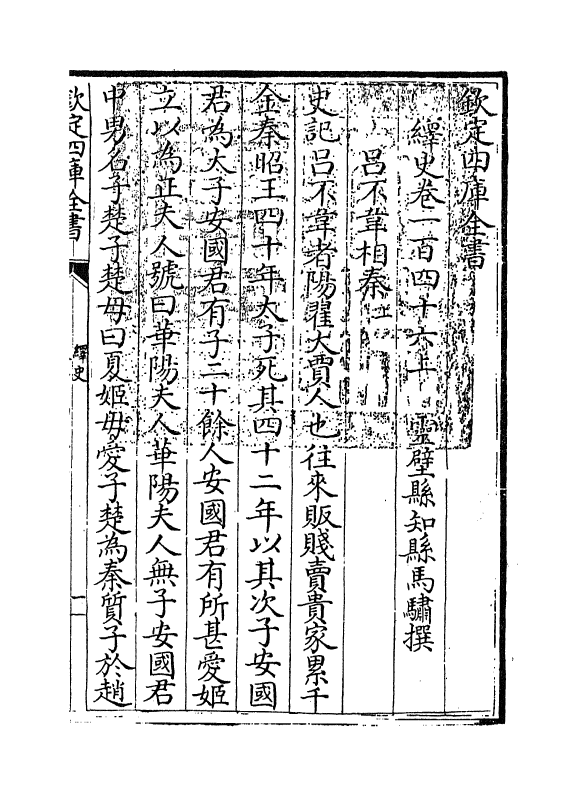 欽定四庫全書
繹史卷一百四十六上　靈壁縣知縣馬驌撰
呂不韋相秦上
史記呂不韋者陽翟大賈人也往來販賤賣貴家累千
金秦昭王四十年太子死其四十二年以其次子安國
君為太子安國君有子二十餘人安國君有所甚愛姬
立以為正夫人號曰華陽夫人華陽夫人無子安國君
中男名子楚子楚母曰夏姬毋愛子楚為秦質子於趙
欽定四庫全書
繹史
一